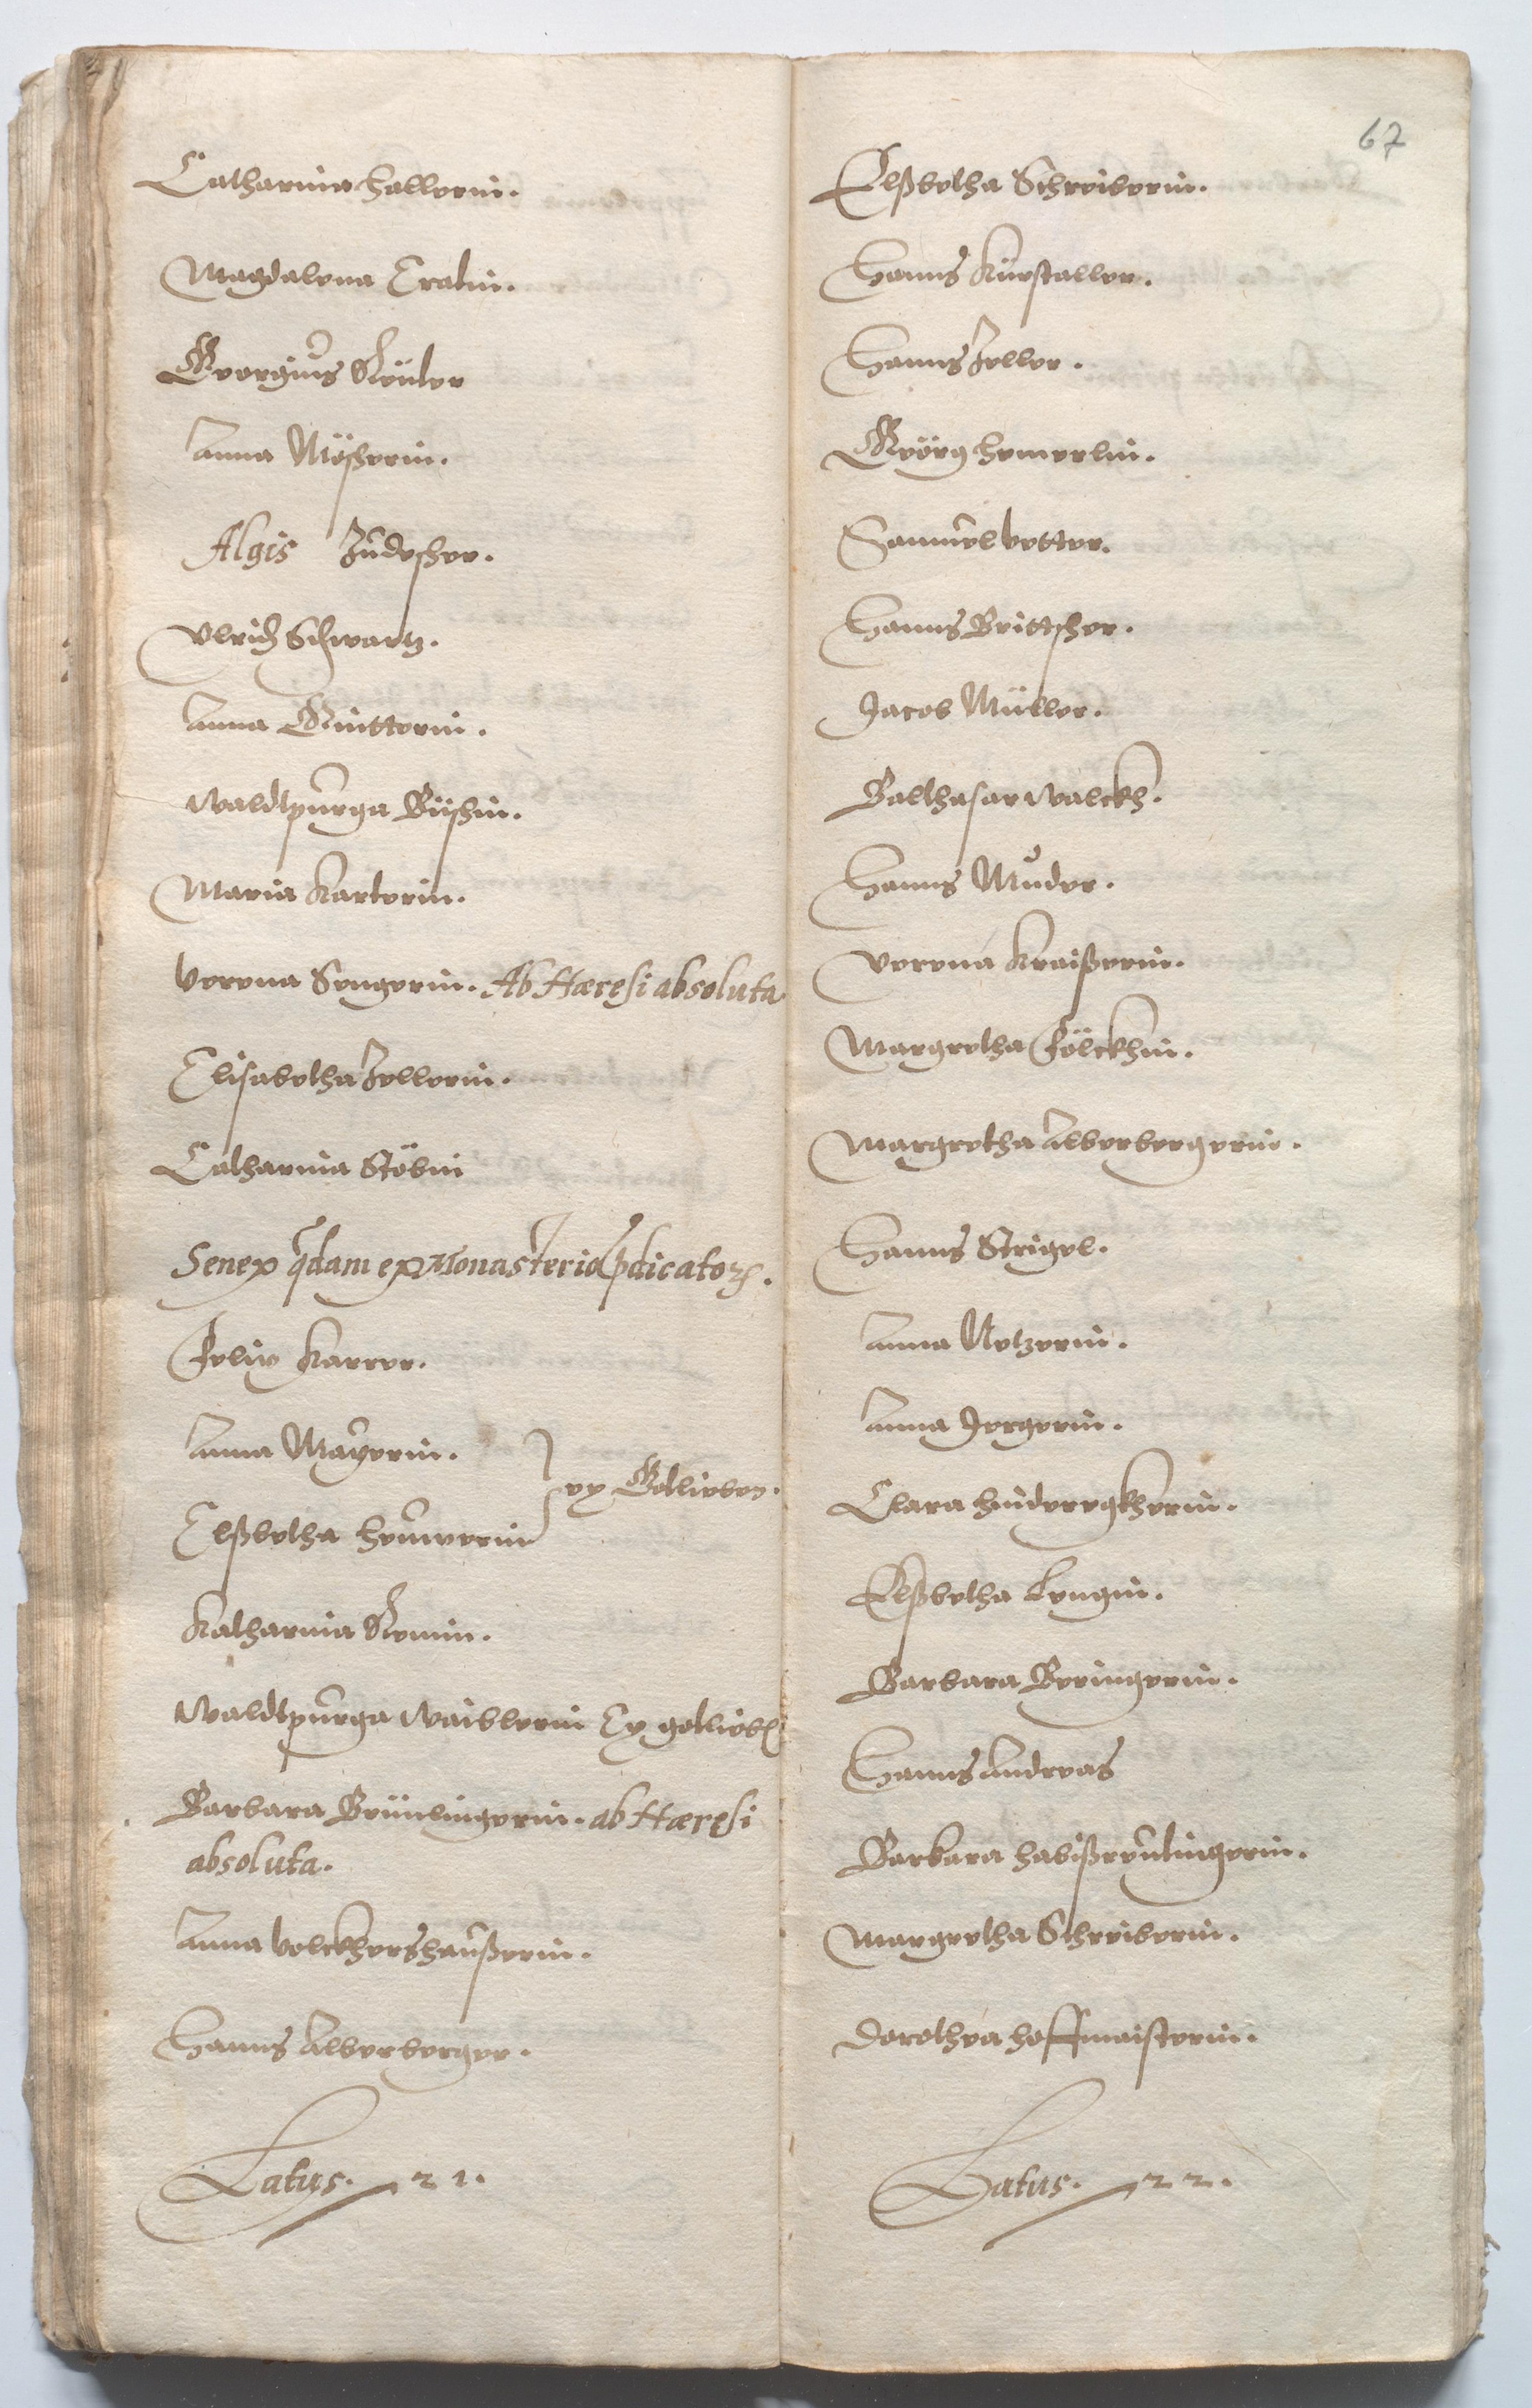 Catharina Hallerin.
Magdalena Eralin.
Georgius Reuler
Anna Mösherin.
Algis Zudesher.
Ulrich Schwartz.
Anna Gintterin.
Waldtpurga Büshin.
Maria Karlerin.
Verena Sengerin. Ab Hæresi absoluta
Elisabetha Zellerin.
Catharina Stöbin
Senex qdam ex Monasterio pdicator.
Felix Karrer.
Anna Mayerin.
ex Gollieben.
Elßbetha Heuwerin
Katharina Remin.
Waldtpurga Waiblerin Ex gollieb
Barbara Brünlingerin. ab Hæresi
absoluta.
Anna Volckhershaußerin.
Hanns Alberberger.
Latus. 21.
67
Elßbetha Schreiberin.
Hanns Kürstaller.
Hanns Zeller.
Geörg Hemerlin.
Samuel Vetter.
Hanns Brittsher.
Jacob Müller.
Balthasar Walckh.
Hanns Muder.
Verena Kraißerin.
Margretha Fölckhin.
Margretha Alberbergerin.
Hanns Strigel.
Anna Metzerin.
Anna Jergerin.
Clara Hinderegkherin.
Elßbetha Lengin.
Barbara Beringerin.
Hanns Andreas
Barbara Habißreutingerin.
Margretha Schreiberin.
Dorothea Hoffmaisterin.
Latus. 22.